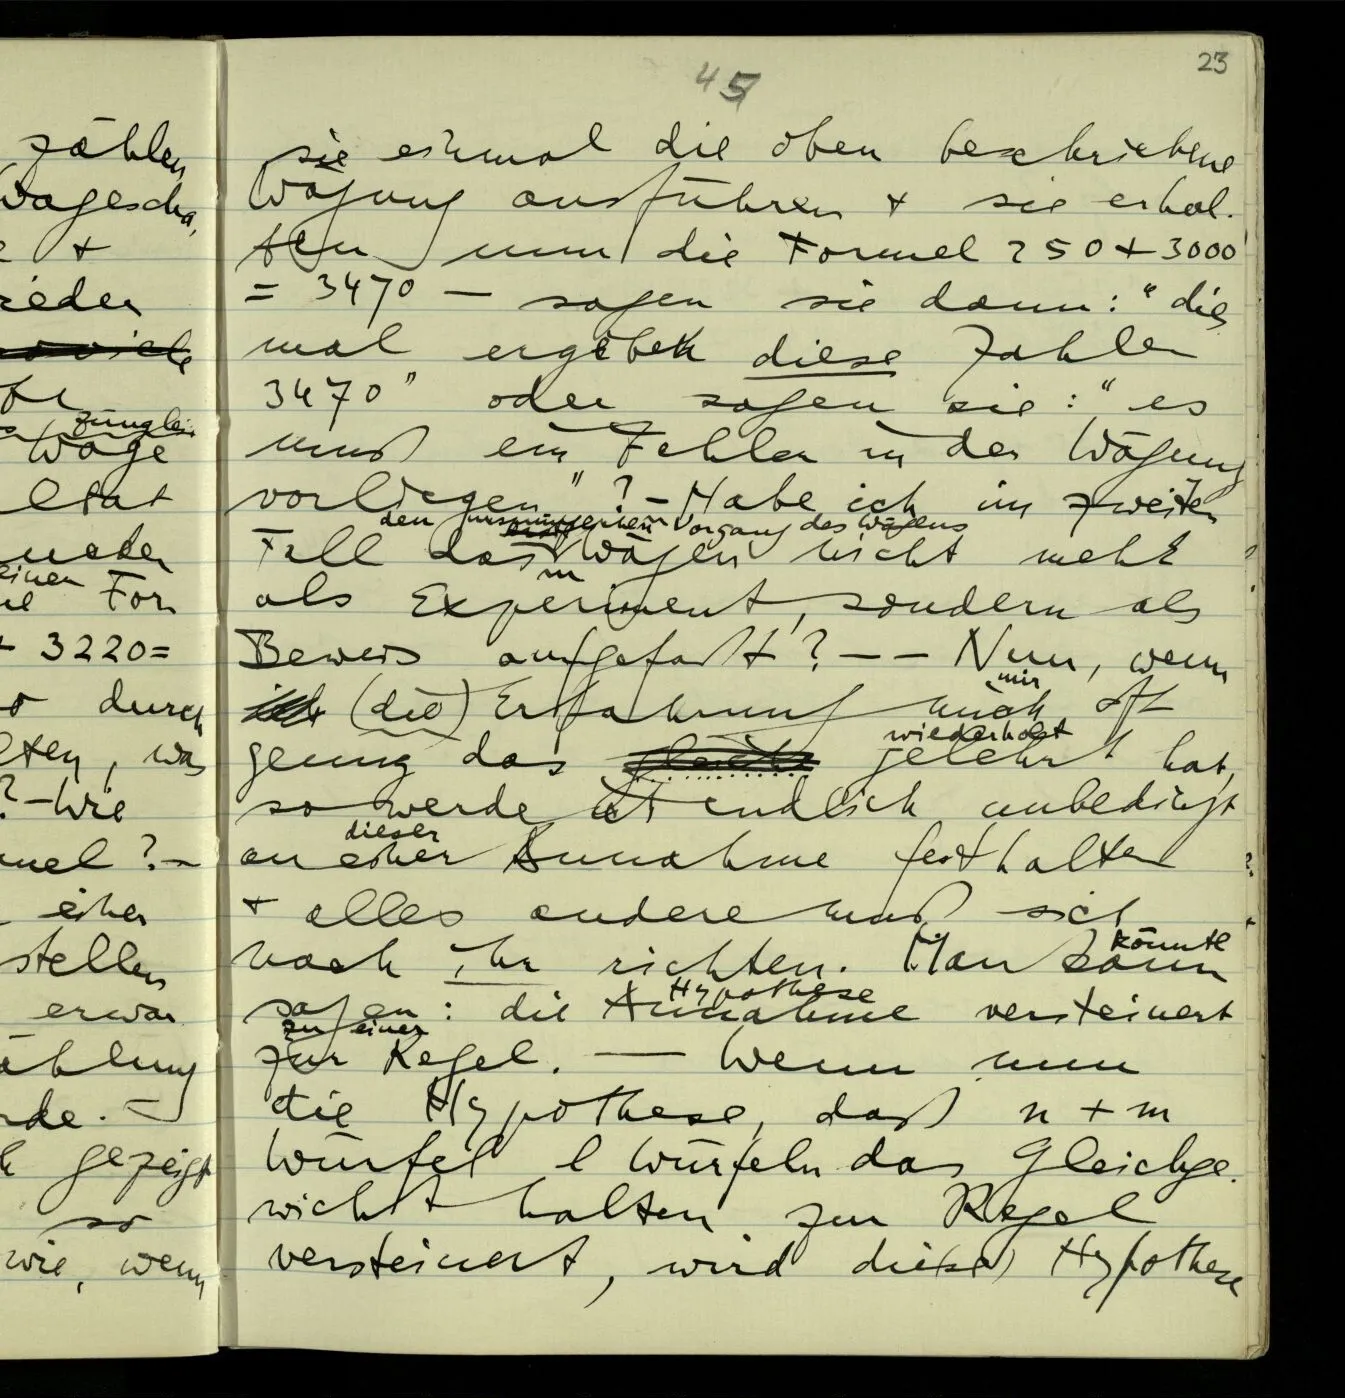 zählen
Wagescha,
e +
wieder
soviele
züngle
Wage
ltat
neden
einen
For
+ 3220=
so durch
lten, was
? – Wie
mel ? –
einer
stellen
erwar
ählung
rde. –
h gezeigt
so
wie, wenn
23
45
sie einmal die oben beschriebene
Wägung ausführen + sie erhal-
ten nun die Formel 250 + 3000
= 3470 – sagen sie dann: "dies
mal ergeben diese Zahlen
3470" oder sagen sie: "es
muß ein Fehler in der Wägung
vorliegen"? – Habe ich im zweiten
den ursprünglichen Vorgang des Wägens
Fall das Wägen nicht mehr
als Experiment, sondern als
Beweis aufgefaßt? – – Nun, wenn
mir
ich (die) Erfahrung mich oft
wiederholt
genug das gleiche gelehrt hat,
so werde ich endlich unbedingt
dieser
an einer Annahme festhalten
+ alles andere muß sich
könnte
nach ihr richten. Man kann
Hypothese
sagen: die Annahme versteinert
zu einer
zur Regel. — Wenn nun
die Hypothese, daß n + m
Würfel l Würfeln das Gleichge-
wicht halten zur Regel
versteinert, wird diese Hypothese